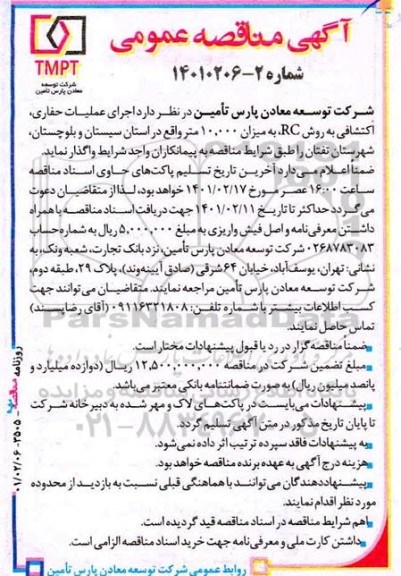 آگهی مناقصه عمومی
شماره ۲-۱۴۰۱۰۲۰۶
TMPT
شرکت توسعه
معادن پارس تأمین
شرکت توسعه معادن پارس تأمین در نظر دارد اجرای عملیات حفاری،
اکتشافی به روش RC، به میزان ۱۰,۰۰۰ متر واقع در استان سیستان و بلوچستان،
شهرستان تفتان را طبق شرایط مناقصه به پیمانکاران واجد شرایط واگذار نماید.
ضمناً اعلام می‌دارد آخرین تاریخ تسلیم پاکت‌های حاوی اسناد مناقصه
ساعت ۱۶:۰۰ عصر مورخ ۱۴۰۱/۰۲/۱۷ خواهد بود، لذا از متقاضیان دعوت
می‌گردد حداکثر تا تاریخ ۱۴۰۱/۰۲/۱۱ جهت دریافت اسناد مناقصه با همراه
داشتن معرفی‌نامه و اصل فیش واریزی به مبلغ ۵,۰۰۰,۰۰۰ ریال به شماره حساب
۰۲۶۸۷۸۳۰۸۳ شرکت توسعه معادن پارس تأمین، نزد بانک تجارت، شعبه ونک، به
نشانی: تهران، یوسف‌آباد، خیابان ۶۴ شرقی (صادق آیینه‌وند)، پلاک ۲۹، طبقه دوم،
شرکت توسعه معادن پارس تأمین مراجعه نمایند. متقاضیان می‌توانند جهت
کسب اطلاعات بیشتر با شماره تلفن: ۰۹۱۱۶۳۲۱۸۰۸ (آقای رضاپسند)
تماس حاصل نمایند.
ضمناً مناقصه‌گزار در رد یا قبول پیشنهادات مختار است.
مبلغ تضمین شرکت در مناقصه ۱۲,۵۰۰,۰۰۰,۰۰۰ ریال (دوازده میلیارد و
پانصد میلیون ریال) به صورت ضمانتنامه بانکی معتبر می‌باشد.
پیشنهادات می‌بایست در پاکت‌های لاک و مهر شده به دبیرخانه شرکت
تا پایان تاریخ مذکور در متن آگهی تسلیم گردد.
به پیشنهادات فاقد سپرده ترتیب اثر داده نمی‌شود.
هزینه درج آگهی به عهده برنده مناقصه خواهد بود.
پیشنهاددهندگان می‌توانند با هماهنگی قبلی نسبت به بازدید از محدوده
مورد نظر اقدام نمایند.
اهم شرایط مناقصه در اسناد مناقصه قید گردیده است.
داشتن کارت ملی و معرفی‌نامه جهت خرید اسناد مناقصه الزامی است.
روابط عمومی شرکت توسعه معادن پارس تأمین
روزنامه مناقصه ۳۵۰۵ - ۰۱/۰۲/۰۶
ParsNamadData